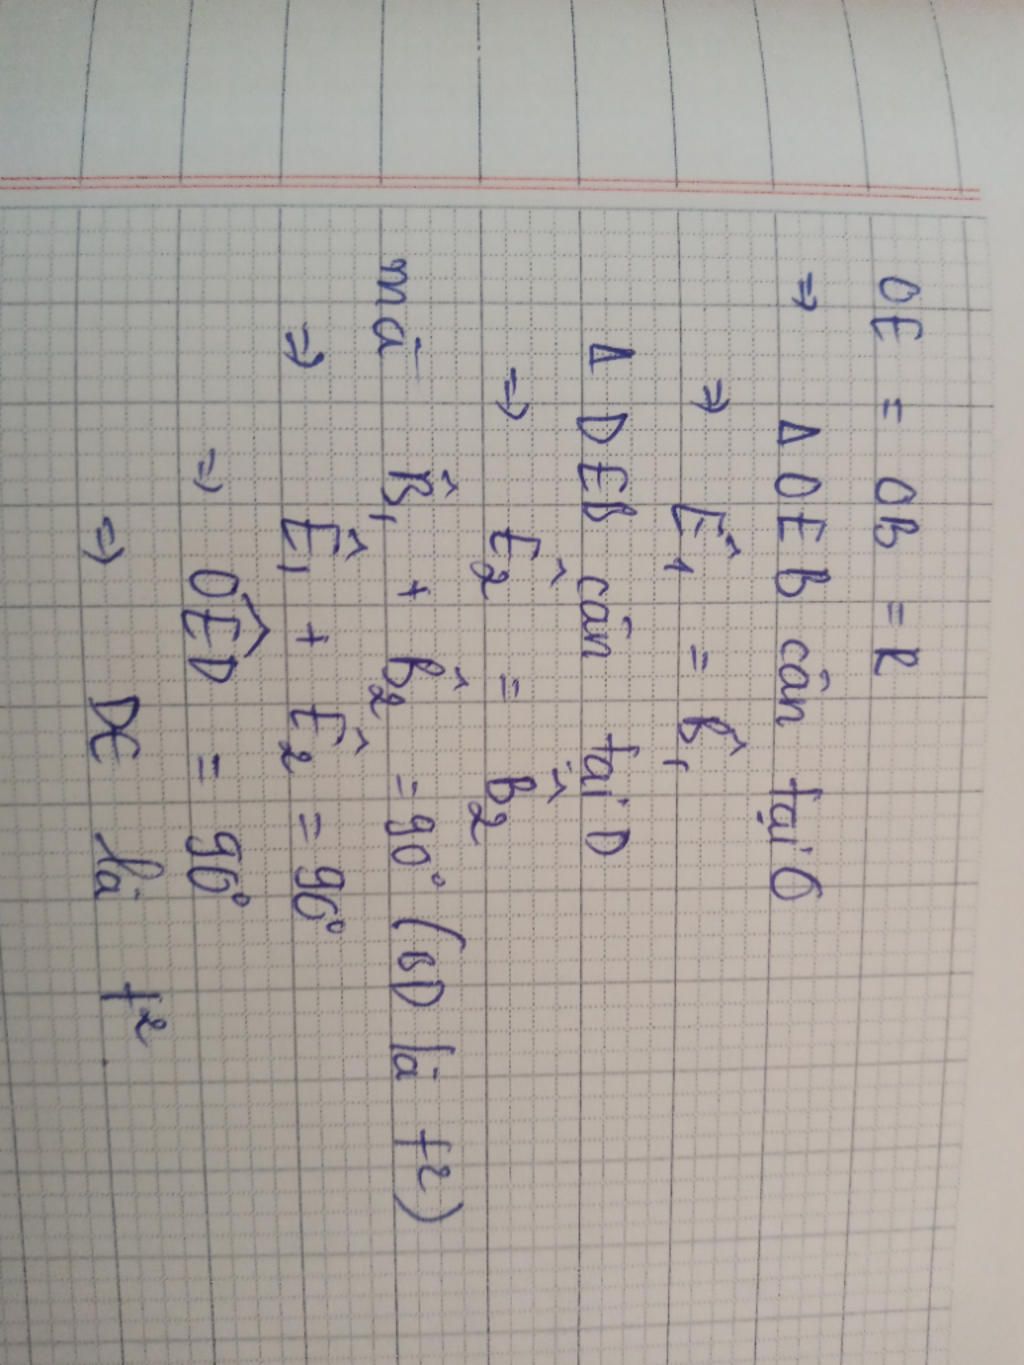 OE = OB = R
⇒ Δ OEB cân tại O
⇒ Ê₁ = B̂₁
Δ DEB cân tại D
⇒ Ê₂ = B̂₂
mà B̂₁ + B̂₂ = 90° (BD là t²)
⇒ Ê₁ + Ê₂ = 90°
⇒ OÊD = 90°
⇒ DE là t².